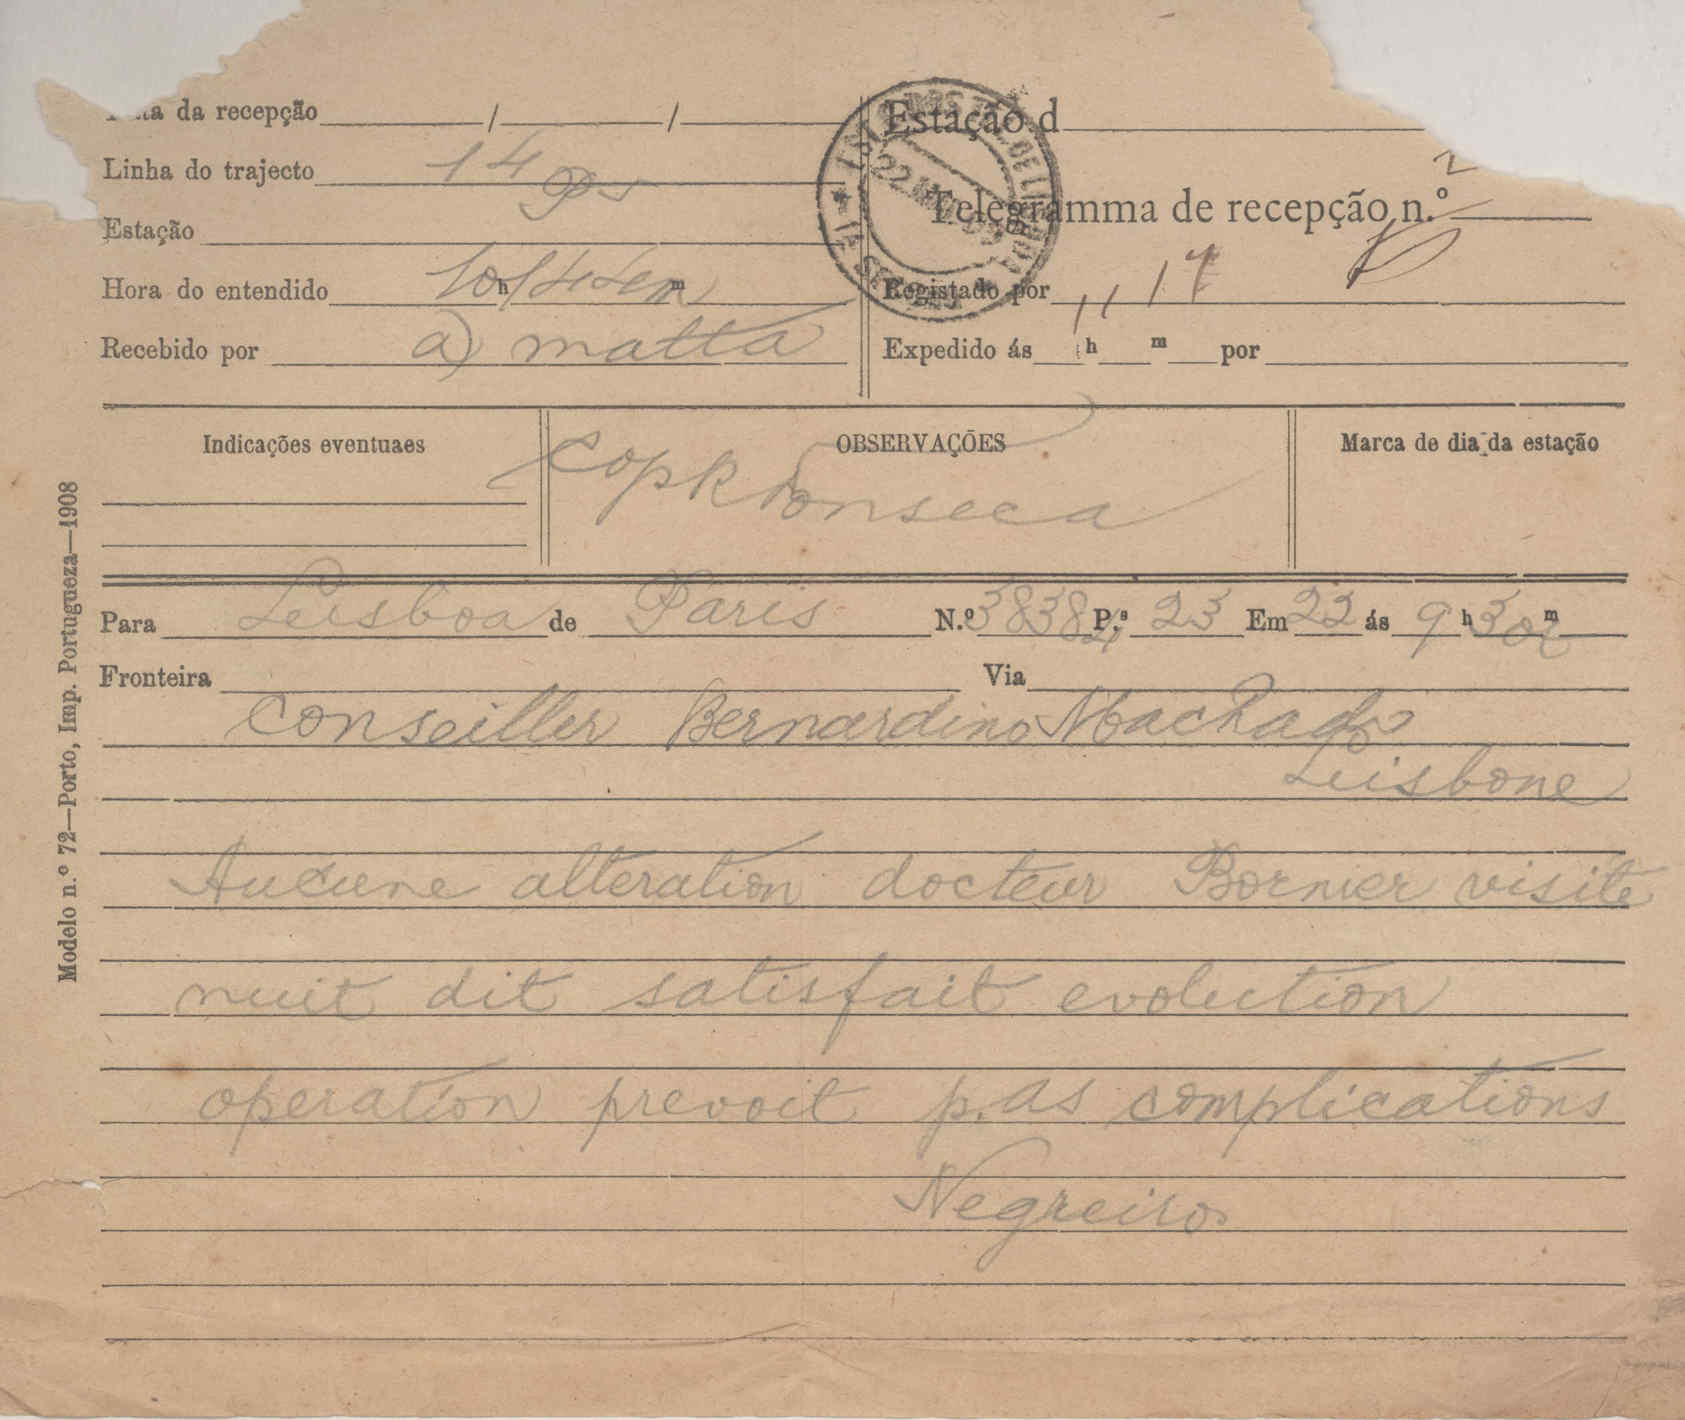 da recepção / /
Linha do trajecto 14 Ps
Estação
Hora do entendido 10 h 44 m
Recebido por a) matta
Estação d
Telegramma de recepção n.º 2
Registado por 17
Expedido ás h m por
Indicações eventuaes
OBSERVAÇÕES
Marca de dia da estação
Fonseca
Para Leisboa de Paris N.º 38384 P.ª 23 Em 22 ás 9 h 30 m
Fronteira Via
conseiller Bernardino Machado
Leisbone
Aucune alteration docteur Bornier visite
nuit dit satisfait evolution
operation prevoit pas complications
Negreiros
Modelo n.º 72—Porto, Imp. Portugueza—1908